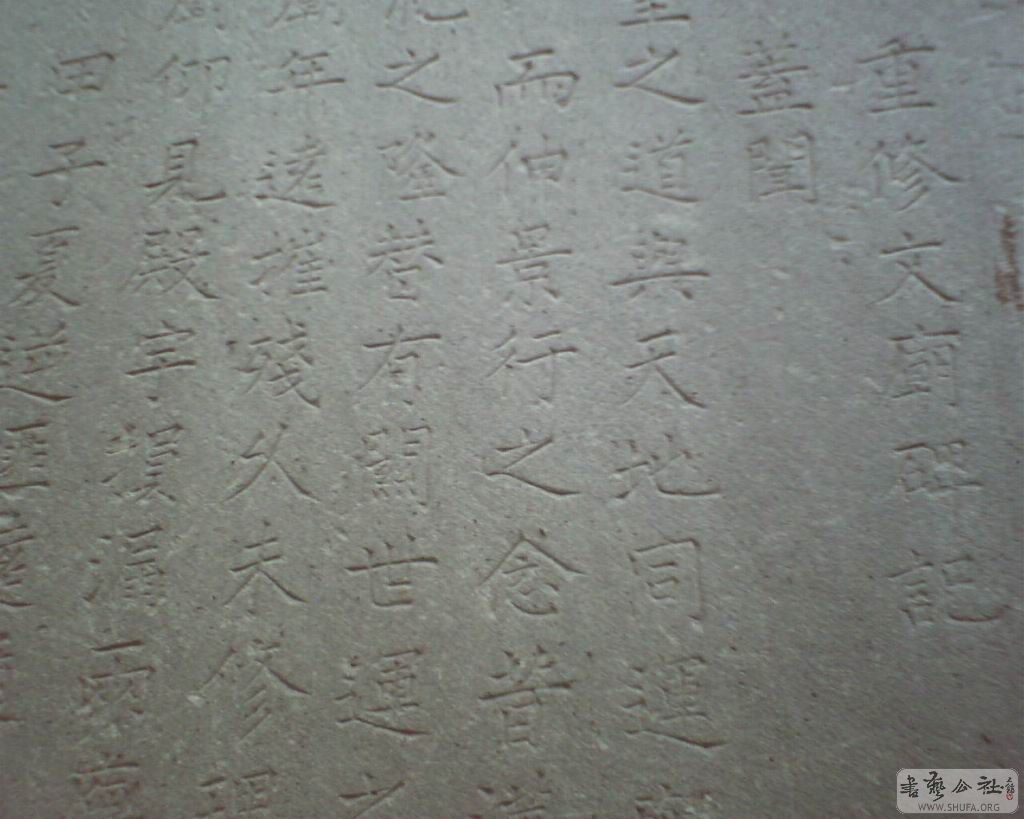 重修文廟碑記
蓋聞
之道與天地同運
而伸景行之念昔
之隆替有關世運之
年遠摧殘久未修理
仰見殿宇損漏兩
田子夏
書藝公社
WWW.SHUFA.ORG